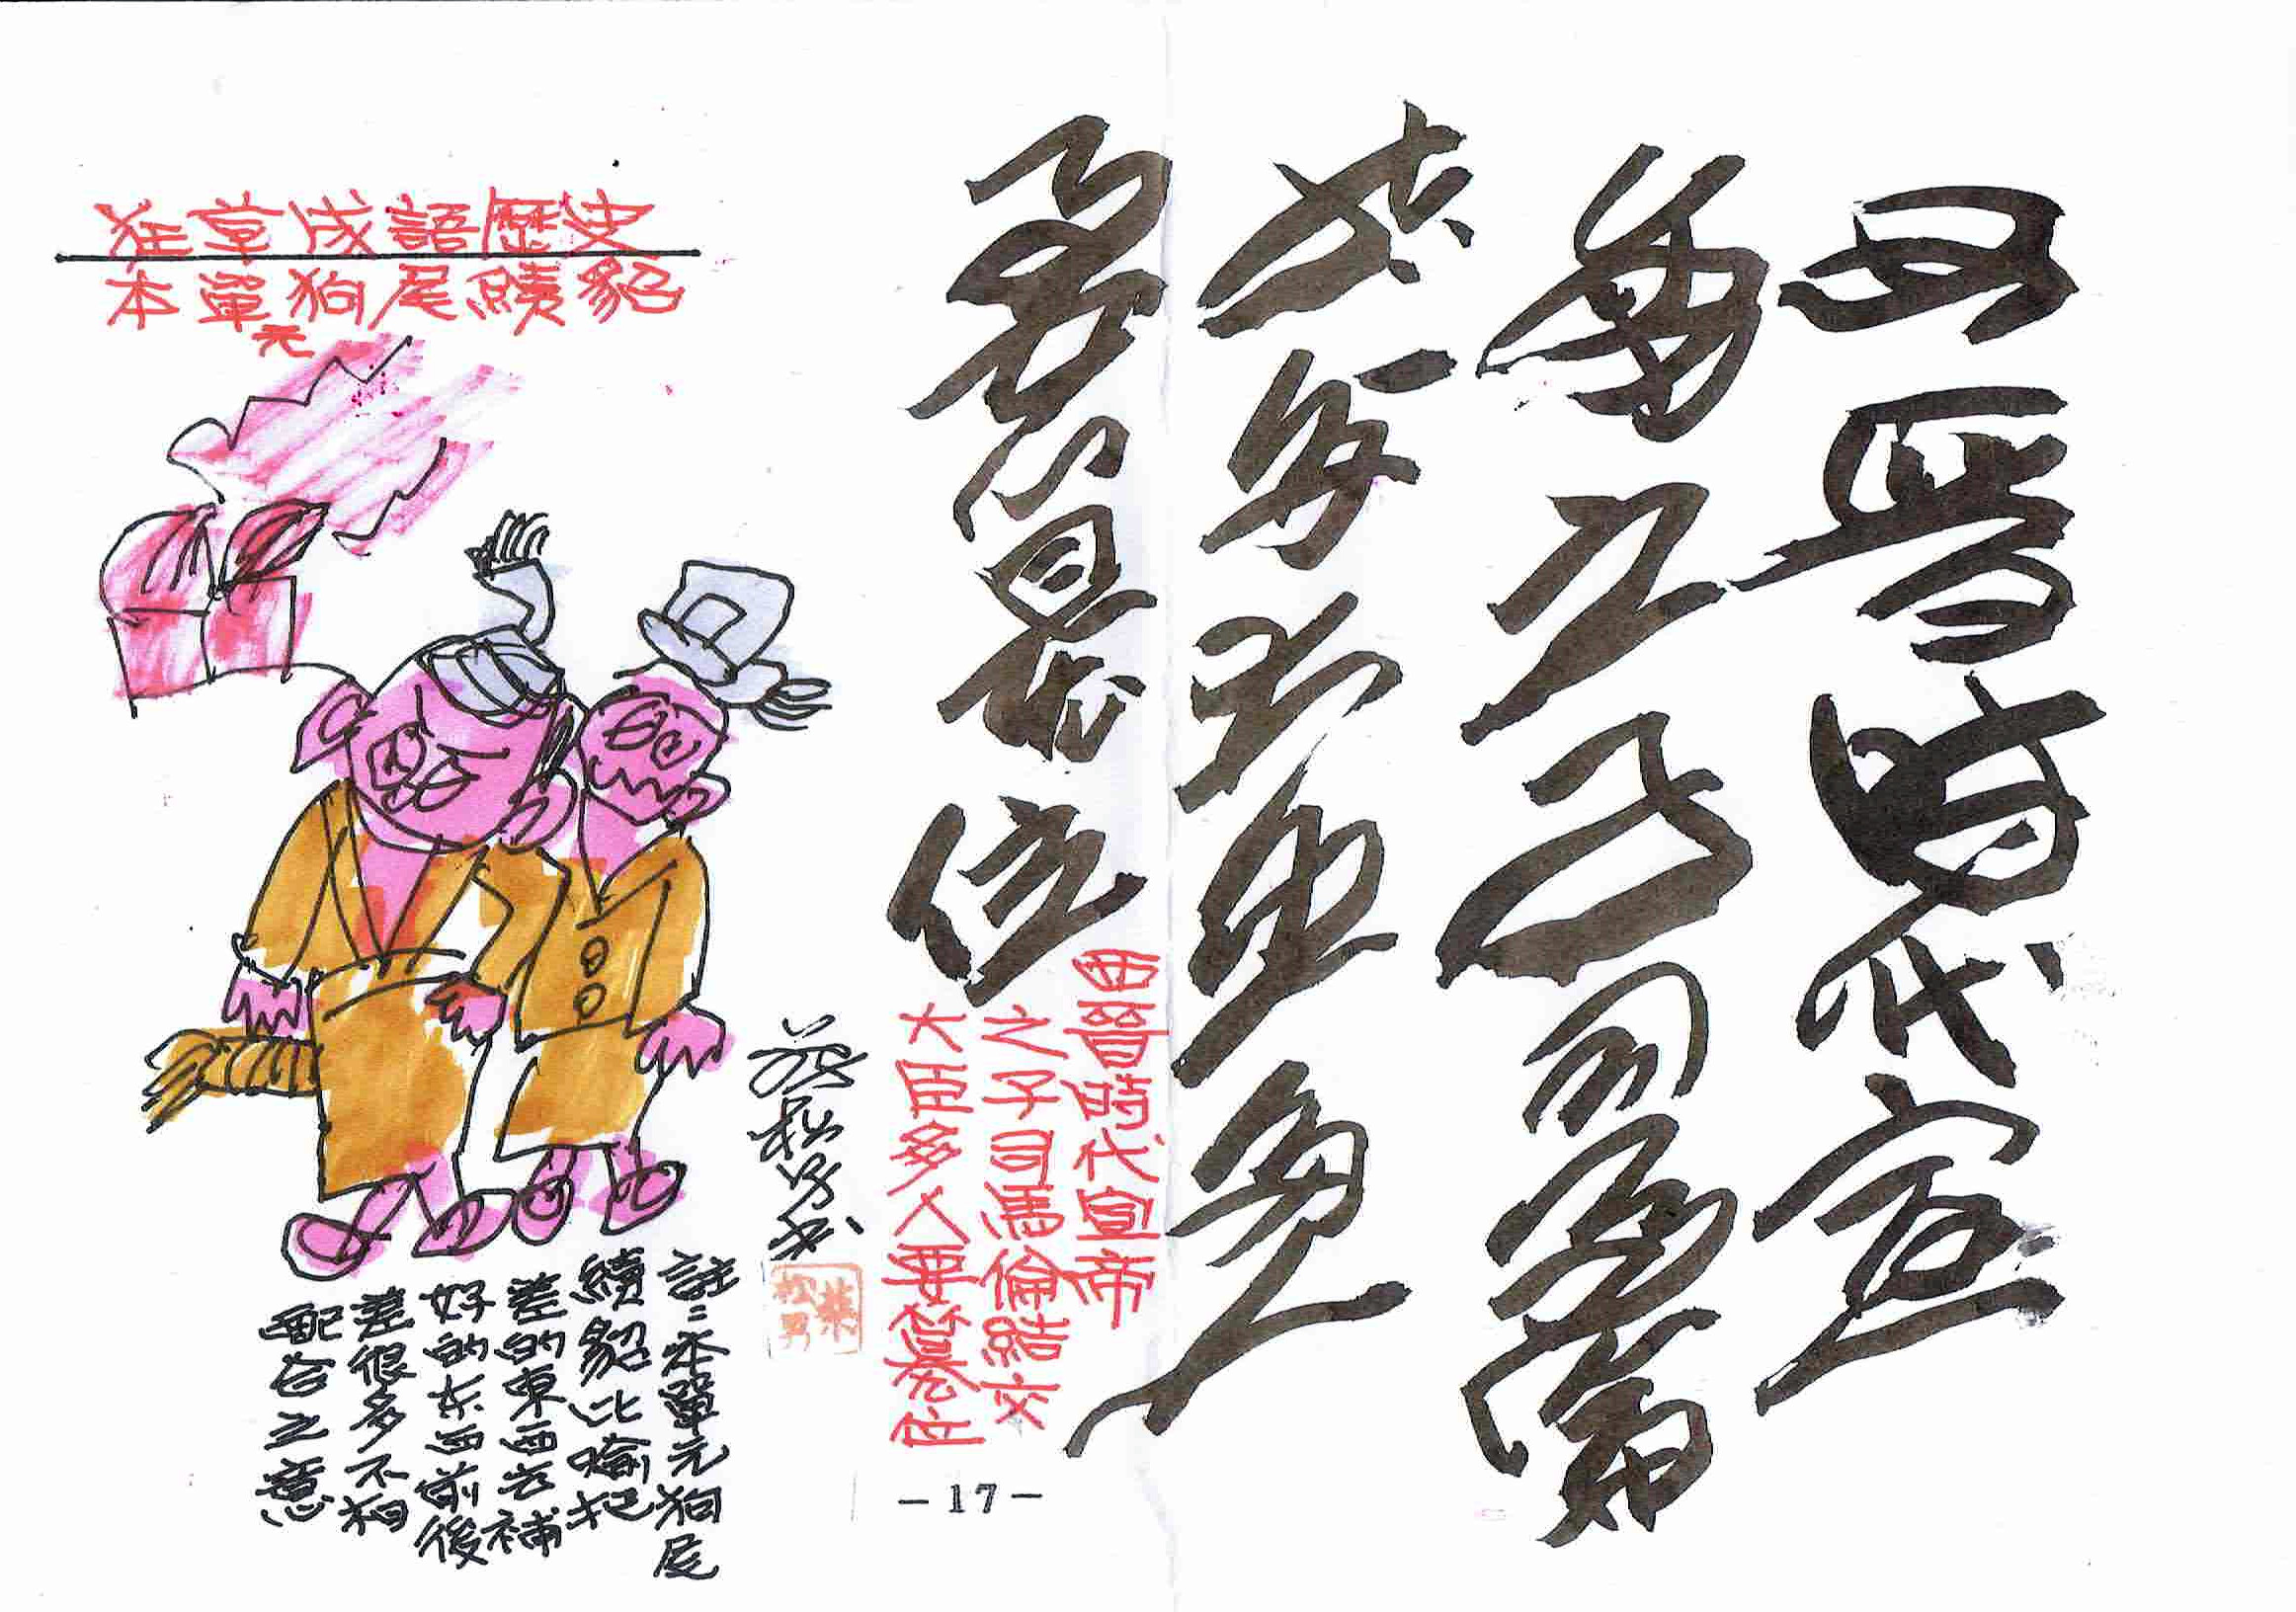 狂草成語歷史
本單元狗尾續貂
西晉時代宣
帝之子司馬倫
結交大臣多
人要篡位
西晉時代宣帝
之子司馬倫結交
大臣多人要篡位
註:本單元狗尾
續貂比喻把
差的東西去補
好的东西前後
差很多不相
配合之意
-17-